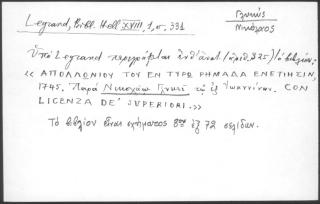 Legrand, Bibl. Hell XVIII, 1, σ. 331
Γλυκύς
Νικόλαος
Ὑπὸ Legrand περιγράφεται ἐνθ' ἀνωτ. (ἀριθ. 325) τὸ βιβλίον:
« ΑΠΟΛΛΩΝΙΟΥ ΤΟΥ ΕΝ ΤΥΡΩ ΡΗΜΑΔΑ ΕΝΕΤΙΗΣΙΝ,
1745. Παρὰ Νικολάῳ Γλυκεῖ τῷ ἐξ Ἰωαννίνων. CON
LICENZA DE' SUPERIORI.»
Τὸ βιβλίον εἶναι σχήματος 8ου ἐξ 72 σελίδων.